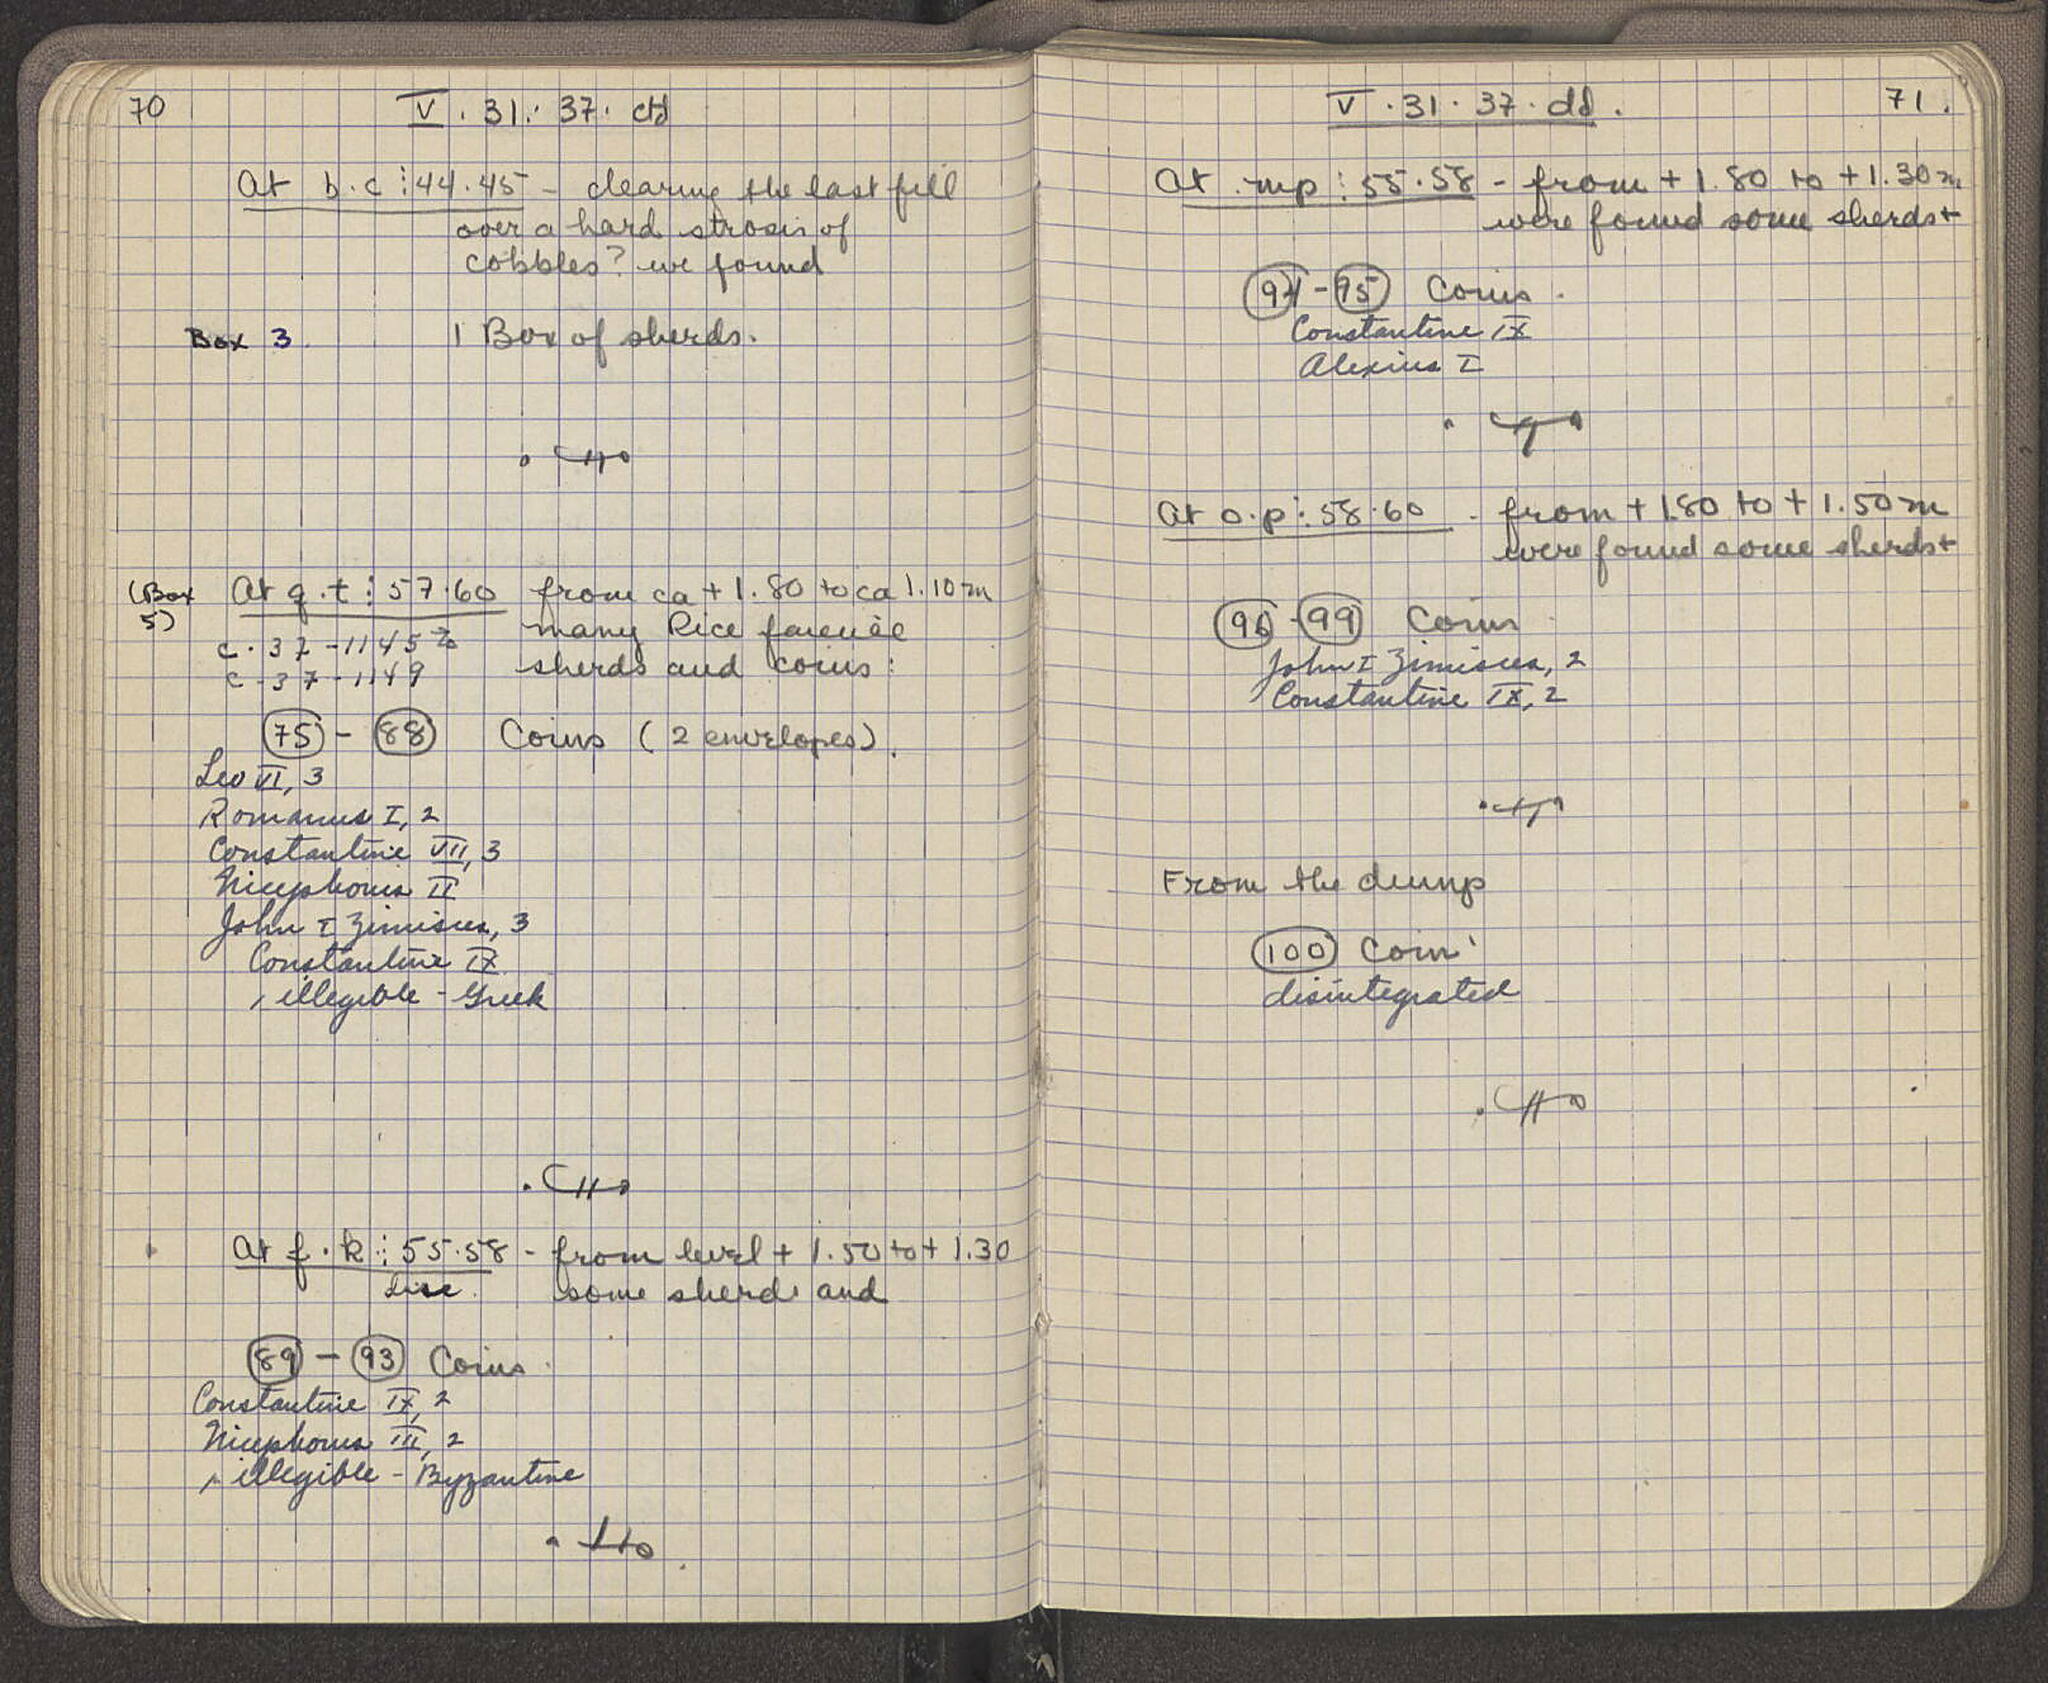 70
V . 31 . 37 . ctd
At b.c : 44.45 - clearing the last fill
over a hard strosis of
cobbles? we found
Box 3. 1 Box of sherds.
(Box 5) At q.t : 57.60 from ca + 1.80 to ca 1.10 m
c. 37 - 1145 to many Rice faience
c - 37 - 1149 sherds and coins:
75 - 88 Coins (2 envelopes).
Leo VI, 3
Romanus I, 2
Constantine VII, 3
Nicephorus II
John I Zimisces, 3
Constantine IX
1 illegible - Greek
At f.k : 55.58 - from level + 1.50 to + 1.30
Disc. some sherds and
89 - 93 Coins.
Constantine IX, 2
Nicephorus III, 2
1 illegible - Byzantine
V . 31 . 37 . 71.
At mp : 55.58 - from + 1.80 to + 1.30 m
were found some sherds +
94 - 95 Coins.
Constantine IX
Alexius I
At o.p : 58.60 - from + 1.80 to + 1.50 m
were found some sherds +
96 - 99 Coins
John I Zimisces, 2
Constantine IX, 2
From the dump
100 Coin
disintegrated